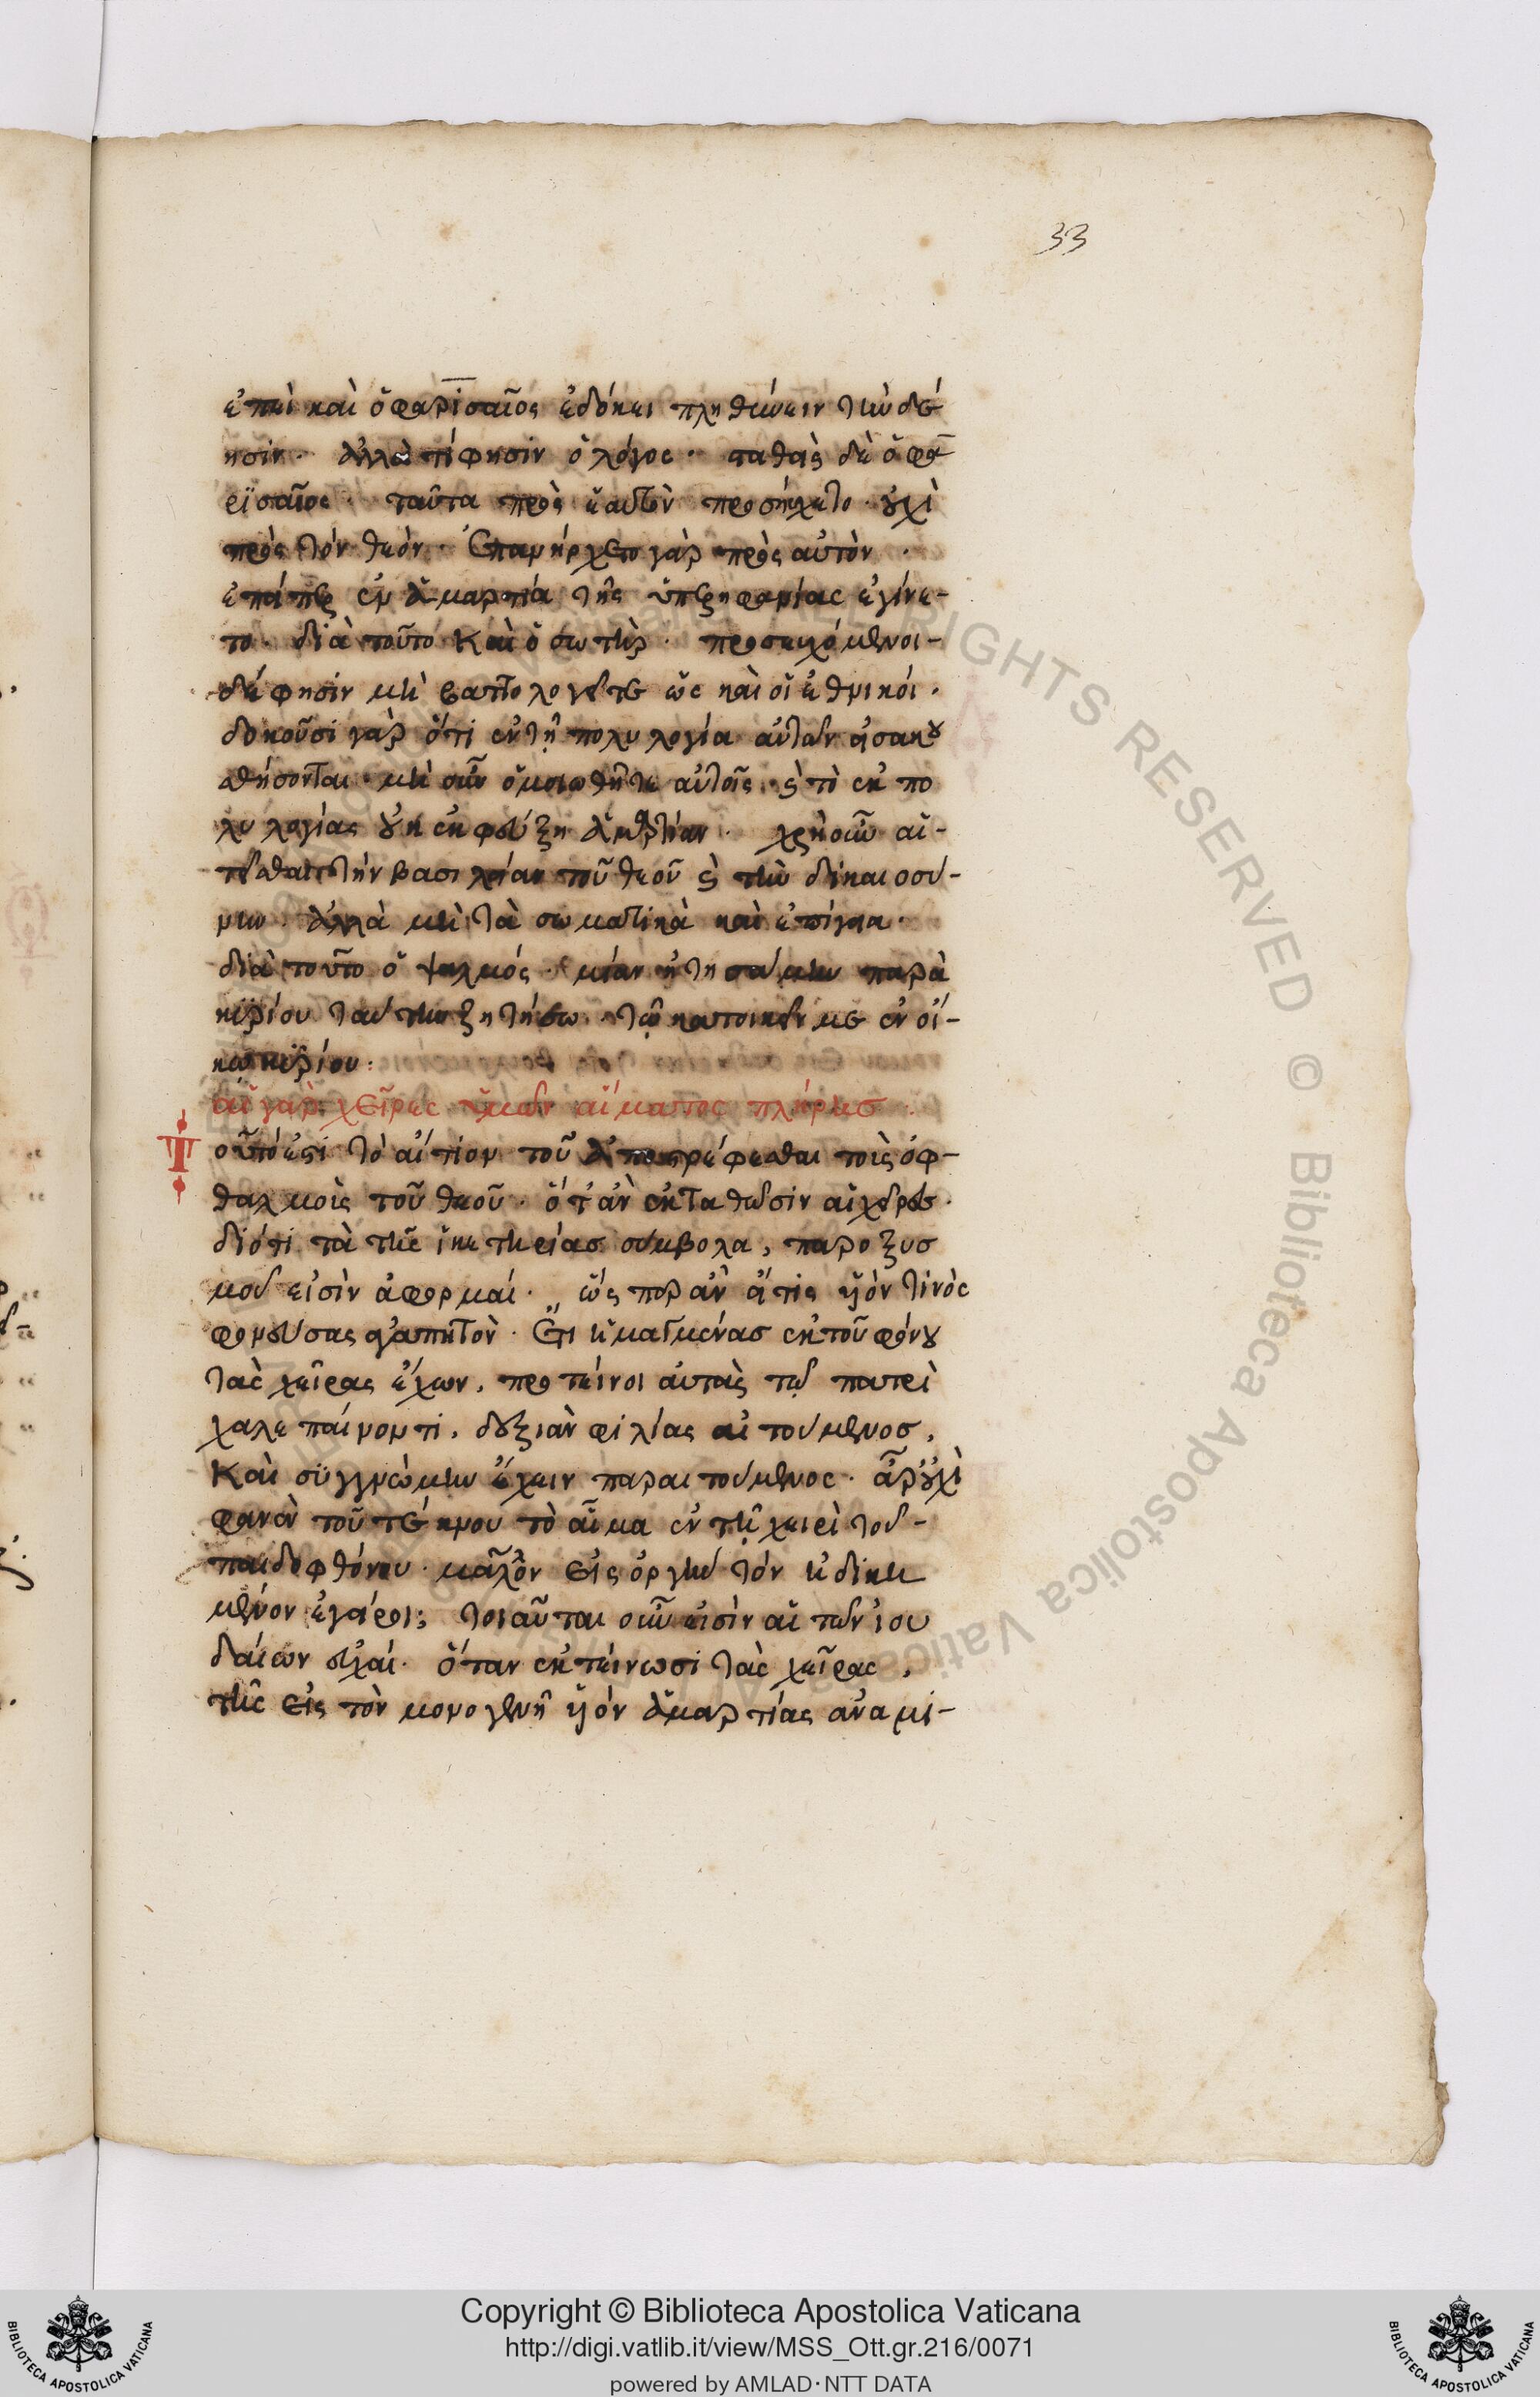 33
ἐπεὶ καὶ ὁ φαρισαῖος ἐδόκει πληθύνειν τὴν δέ
ησιν. ἀλλὰ τί φησιν ὁ λόγος. σταθεὶς δὲ ὁ φα
ρισαῖος. ταῦτα πρὸς ἑαυτὸν προσηύχετο. οὐχὶ
πρὸς τὸν θεόν. ἐπανήρχετο γὰρ πρὸς αὐτὸν.
ἐπείπερ ἐν ἁμαρτία τῆς ὑπερηφανίας ἐγίνε-
το. διὰ τοῦτο καὶ ὁ σωτὴρ. προσευχόμενοι-
δέ φησιν μὴ βαττολογεῖτε ὡς καὶ οἱ ἐθνικοί.
δοκοῦσι γὰρ ὅτι ἐν τῇ πολυλογία αὐτῶν εἰσακου
σθήσονται. μὴ οὖν ὁμοιωθῆτε αὐτοῖς. καὶ τὸ ἐκ πο
λυλογίας οὐκ ἐκφεύξη ἁμαρτίαν. χρὴ οὖν αἰ-
τεῖσθαι τὴν βασιλείαν τοῦ θεοῦ καὶ τὴν δικαιοσύ-
νην. ἀλλὰ μὴ τὰ σωματικὰ καὶ ἐπίγεια.
διὰ τοῦτο ὁ ψαλμός. μίαν ἠτησάμην παρὰ
κυρίου ταύτην ζητήσω. τῷ κατοικεῖν με ἐν οἴ-
κῳ κυρίου.
αἱ γὰρ χεῖρες ὑμῶν αἵματος πλήρεις.
Τοῦτό ἐστι τὸ αἴτιον τοῦ ἀποστρέφεσθαι τοὶς ὀφ-
θαλμοὶς τοῦ θεοῦ. ὅτ' ἂν ἐκταθῶσιν αἱ χεῖρες.
διότι τὰ τῆς ἱκετηρίας σύμβολα, παροξυσ
μοῦ εἰσὶν ἀφορμαί. ὥσπερ ἂν εἴ τις υἱόν τινὸς
φονεύσας ἀγαπητὸν. ἔτι ᾑμαγμένας ἐκ τοῦ φόνου
τὰς χεῖρας ἔχων, προτείνοι αὐτὰς τῷ πατρὶ
χαλεπαίνοντι, δεξιὰν φιλίας αἰτούμενος,
καὶ συγγνώμην ἔχειν παραιτούμενος. ἆρ' οὐχὶ
φανὲν τοῦ τέκνου τὸ αἷμα ἐν τῇ χειρὶ τοῦ-
παιδοφθόνου μᾶλλον εἰς ὀργὴν τὸν ἠδικη
μένον ἐγείροι; τοιαῦται οὖν εἰσὶν αἱ τῶν ἰου
δαίων εὐχαί. ὅταν ἐκτείνωσι τὰς χεῖρας,
τῆς εἰς τὸν μονογενῆ υἱόν ἁμαρτίας ἀναμι-
Copyright © Biblioteca Apostolica Vaticana
http://digi.vatlib.it/view/MSS_Ott.gr.216/0071
powered by AMLAD·NTT DATA